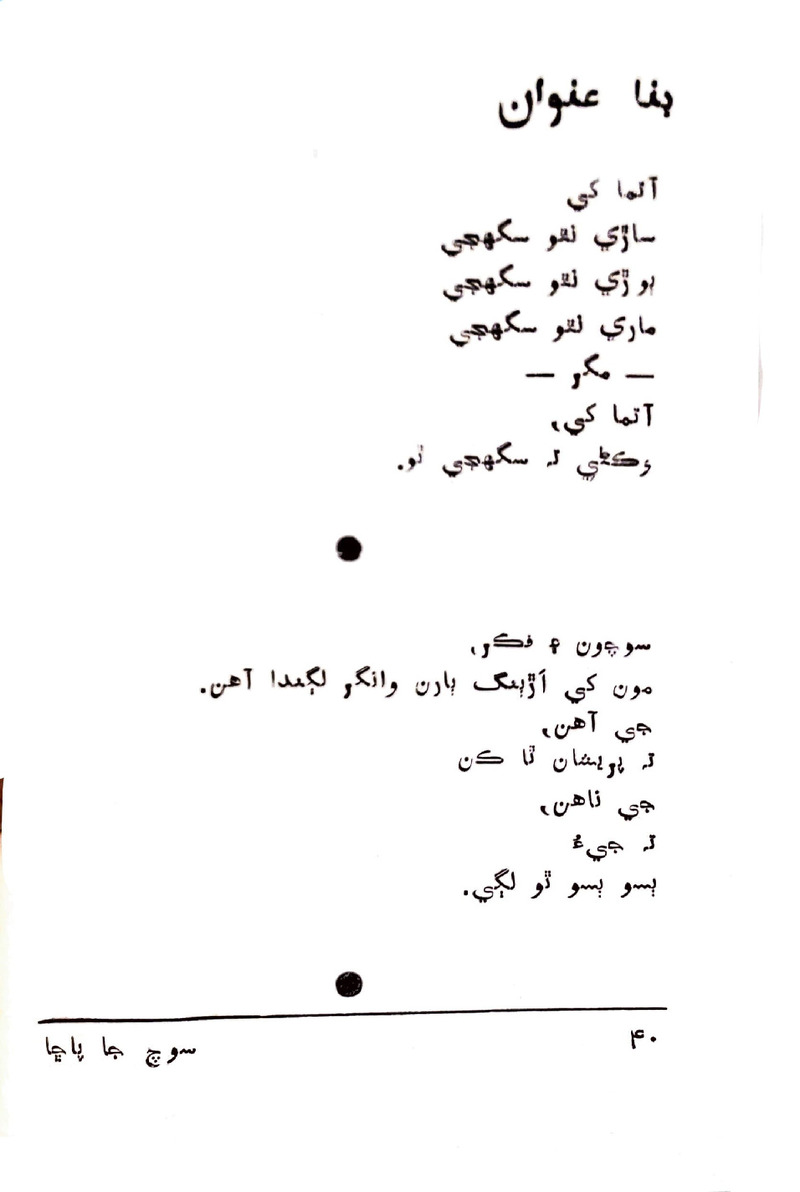 بنا عنوان
آتما کي
ساڙي نٿو سگهجي
ٻوڙي نٿو سگهجي
ماري نٿو سگهجي
— مگر —
آتما کي،
وڪڻي تہ سگهجي ٿو.
سوچون ۽ فڪر،
مون کي اَڙٻنگ ٻارن وانگر لڳندا آهن.
جي آهن،
تہ پريشان ٿا ڪن
جي ناهن،
تہ جيءُ
ٻسو ٻسو ٿو لڳي.
۴۰
سوچ جا پاڇا